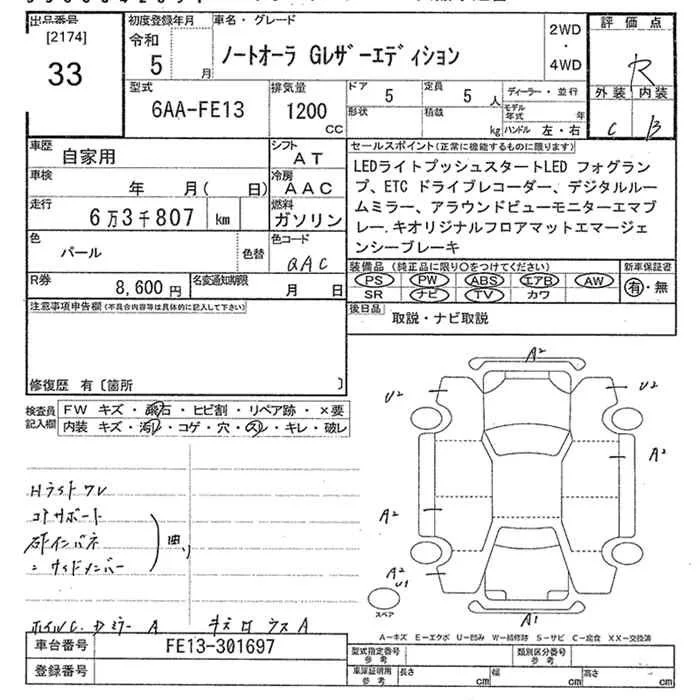 出品番号
[2174]
33
初度登録年月
令和
5
月
車名・グレード
ノートオーラ Gレザーエディション
2WD
・
4WD
評価点
R
外装 内装
C B
型式
6AA-FE13
排気量
1200
CC
ドア
5
定員
5 人
形状
積載
kg
ディーラー・並行
モデル年式
年
ハンドル 左・右
車歴
自家用
シフト
AT
車検
年 月( 日)
冷房
AAC
走行
6万3千807 km
燃料
ガソリン
色
パール
色替
色コード
QAC
R券
8,600円
名変通知期限
月 日
セールスポイント(正常に機能するものに限ります)
LEDライトプッシュスタートLED フォグラン
プ、ETC ドライブレコーダー、デジタルルー
ムミラー、アラウンドビューモニターエマブ
レー.キオリジナルフロアマットエマージェ
ンシーブレーキ
装備品(純正品に限り○をつけてください)
新車保証書
PS PW ABS エアB AW
SR ナビ TV カワ
有・無
後日品
取説・ナビ取説
注意事項申告欄(不具合内容等は具体的に記入して下さい)
修復歴 有〔箇所 〕
検査員
記入欄
FW キズ・飛石・ヒビ割・リペア跡・×要
内装 キズ・汚レ・コゲ・穴・スレ・キレ・破レ
Hライトワレ
コアサポート
右インパネ
〃サイドメンバー
曲り
A2
U2
U2
A2
A2
A2
U1
A1
スペア
ホイルC.
ミラーA
A
A－キズ E－エクボ U－凹み W－補修跡 S－サビ C－腐食 XX－交換済
車台番号
FE13-301697
登録番号
型式指定番号
参考
類別区分番号
参考
車庫証明用
参考
長さ
cm
幅
cm
高さ
cm